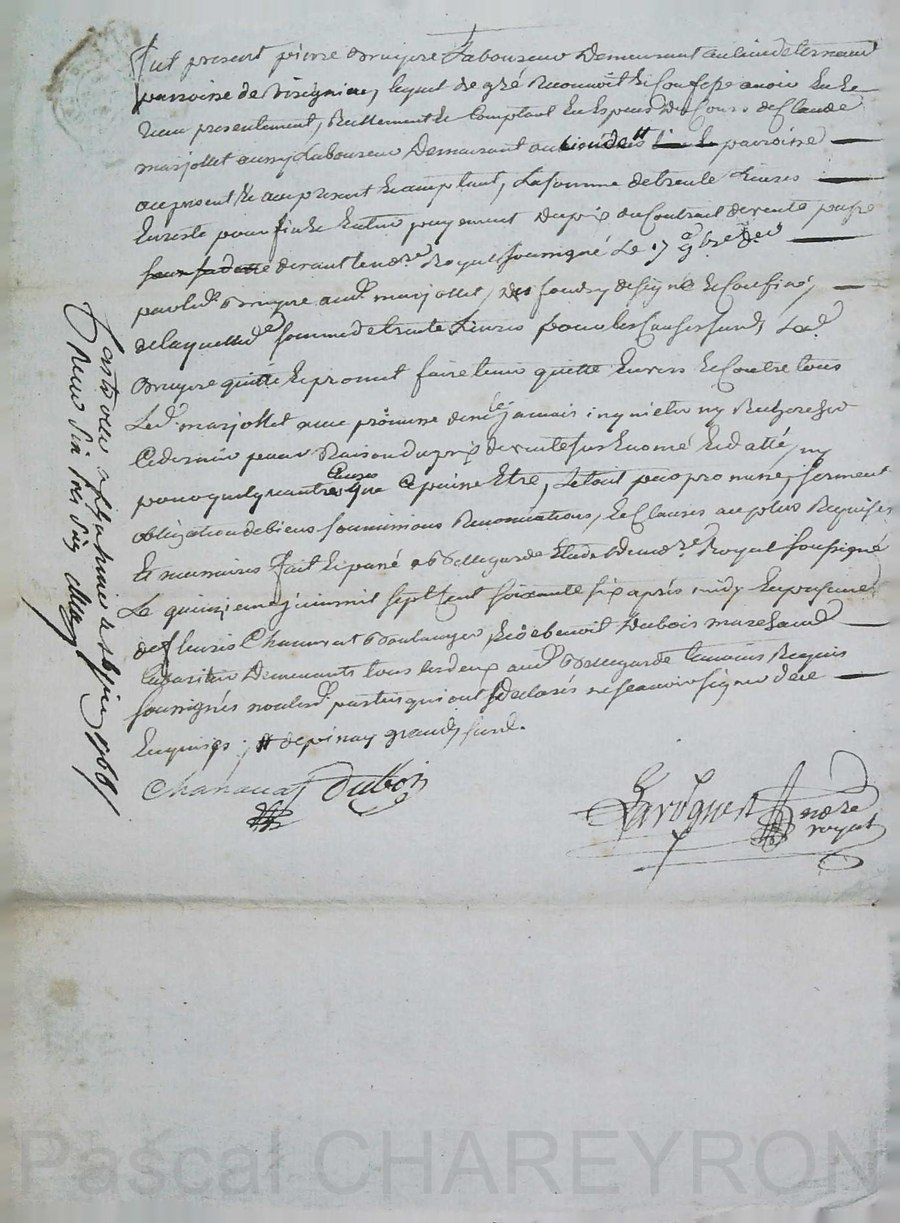 fut present pierre Bruyere Laboureur Demeurant au lieu de
parroisse de, lequel de gré Reconnoit et Confesse avoir Eu Re
ceu presentement, Reellement et Comptant En Especes du Cours de Claude
marjollet aussy Laboureur Demeurant au lieu parroisse
au present et acceptant, La somme de trente Livres
En reste pour fin et Entier payement du prix du Contrat de vente passé
devant le no.re Royal soussigné Le 17 9bre d.er
par led. Bruyere aud. marjollet, des fonds y designé et Confiné,
de laquelle d.e somme de trente Livres pour les Causes susd. Led.
Bruyere quitte et promet faire tenir quitte Envers et Contre tous
Led. marjollet avec promesse de ne le jamais inquieter ny Rechercher
Ce dernier pour Raison du prix de vente sus Enomé et datté, ny
pour quelqu'autre Cause que Ce puisse Etre, Le tout par promesse, serment
obligation de biens soumissions Renonciations, et Clauses au plus Requises
Et necessaires fait et passé a Etude de no.re Royal soussigné
Le quinzieme juin mil sept Cent soixante six après midy En presence
de fleuris Chanavat Boulanger, et de benoit Dubois marchand
Demeurants tous les deux aud. temoins Requis
soussignés non lesd. parties qui ont declarés ne scavoir signer de ce
Enquises
Chanavat Dubois
no.re
royal
juin 1766
Receu six sols six
Pascal CHAREYRON